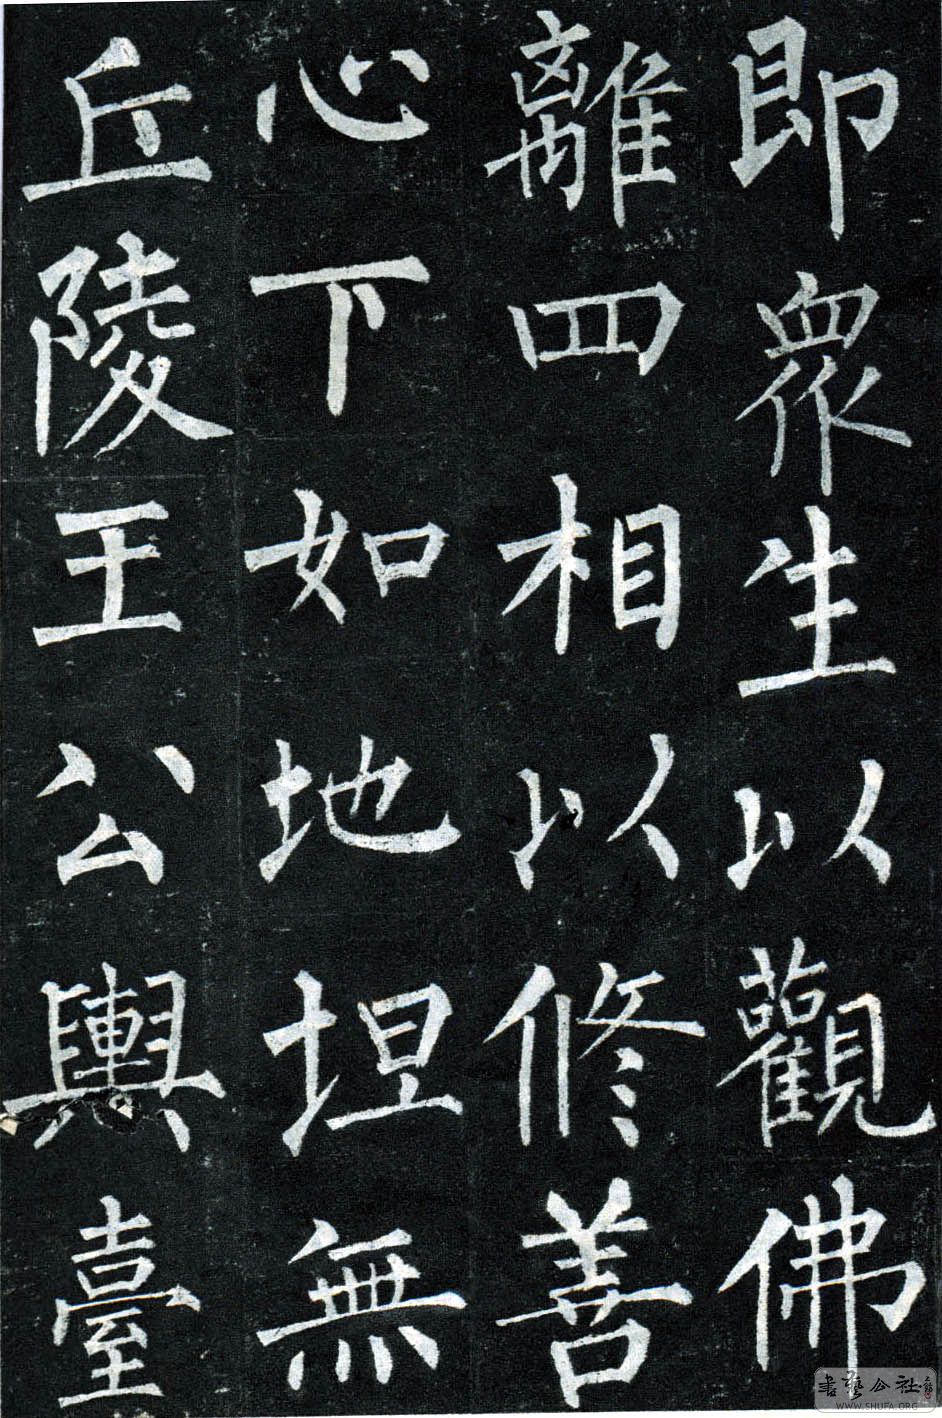 即眾生以觀佛
離四相以修善
心下如地坦無
丘陵王公輿臺
書藝公社
WWW.SHUFA.ORG